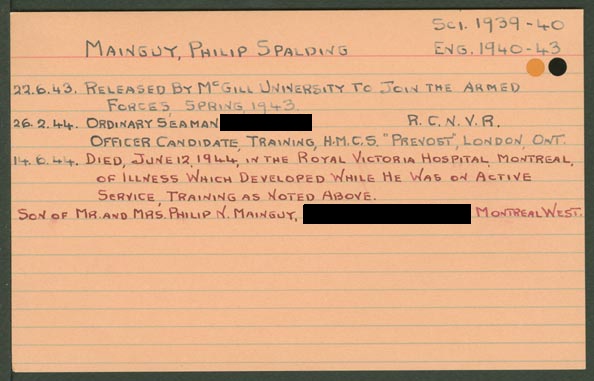 Sci. 1939-40
Mainguy, Philip Spalding Eng. 1940-43
22.6.43. Released by McGill University to join the Armed
Forces, Spring, 1943.
26.2.44. Ordinary Seaman R.C.N.V.R.
Officer Candidate, Training, H.M.C.S. "Prevost", London, Ont.
14.6.44. Died, June 12, 1944, in the Royal Victoria Hospital, Montreal,
of illness which developed while he was on active
service, training as noted above.
Son of Mr. and Mrs. Philip N. Mainguy, Montreal West.